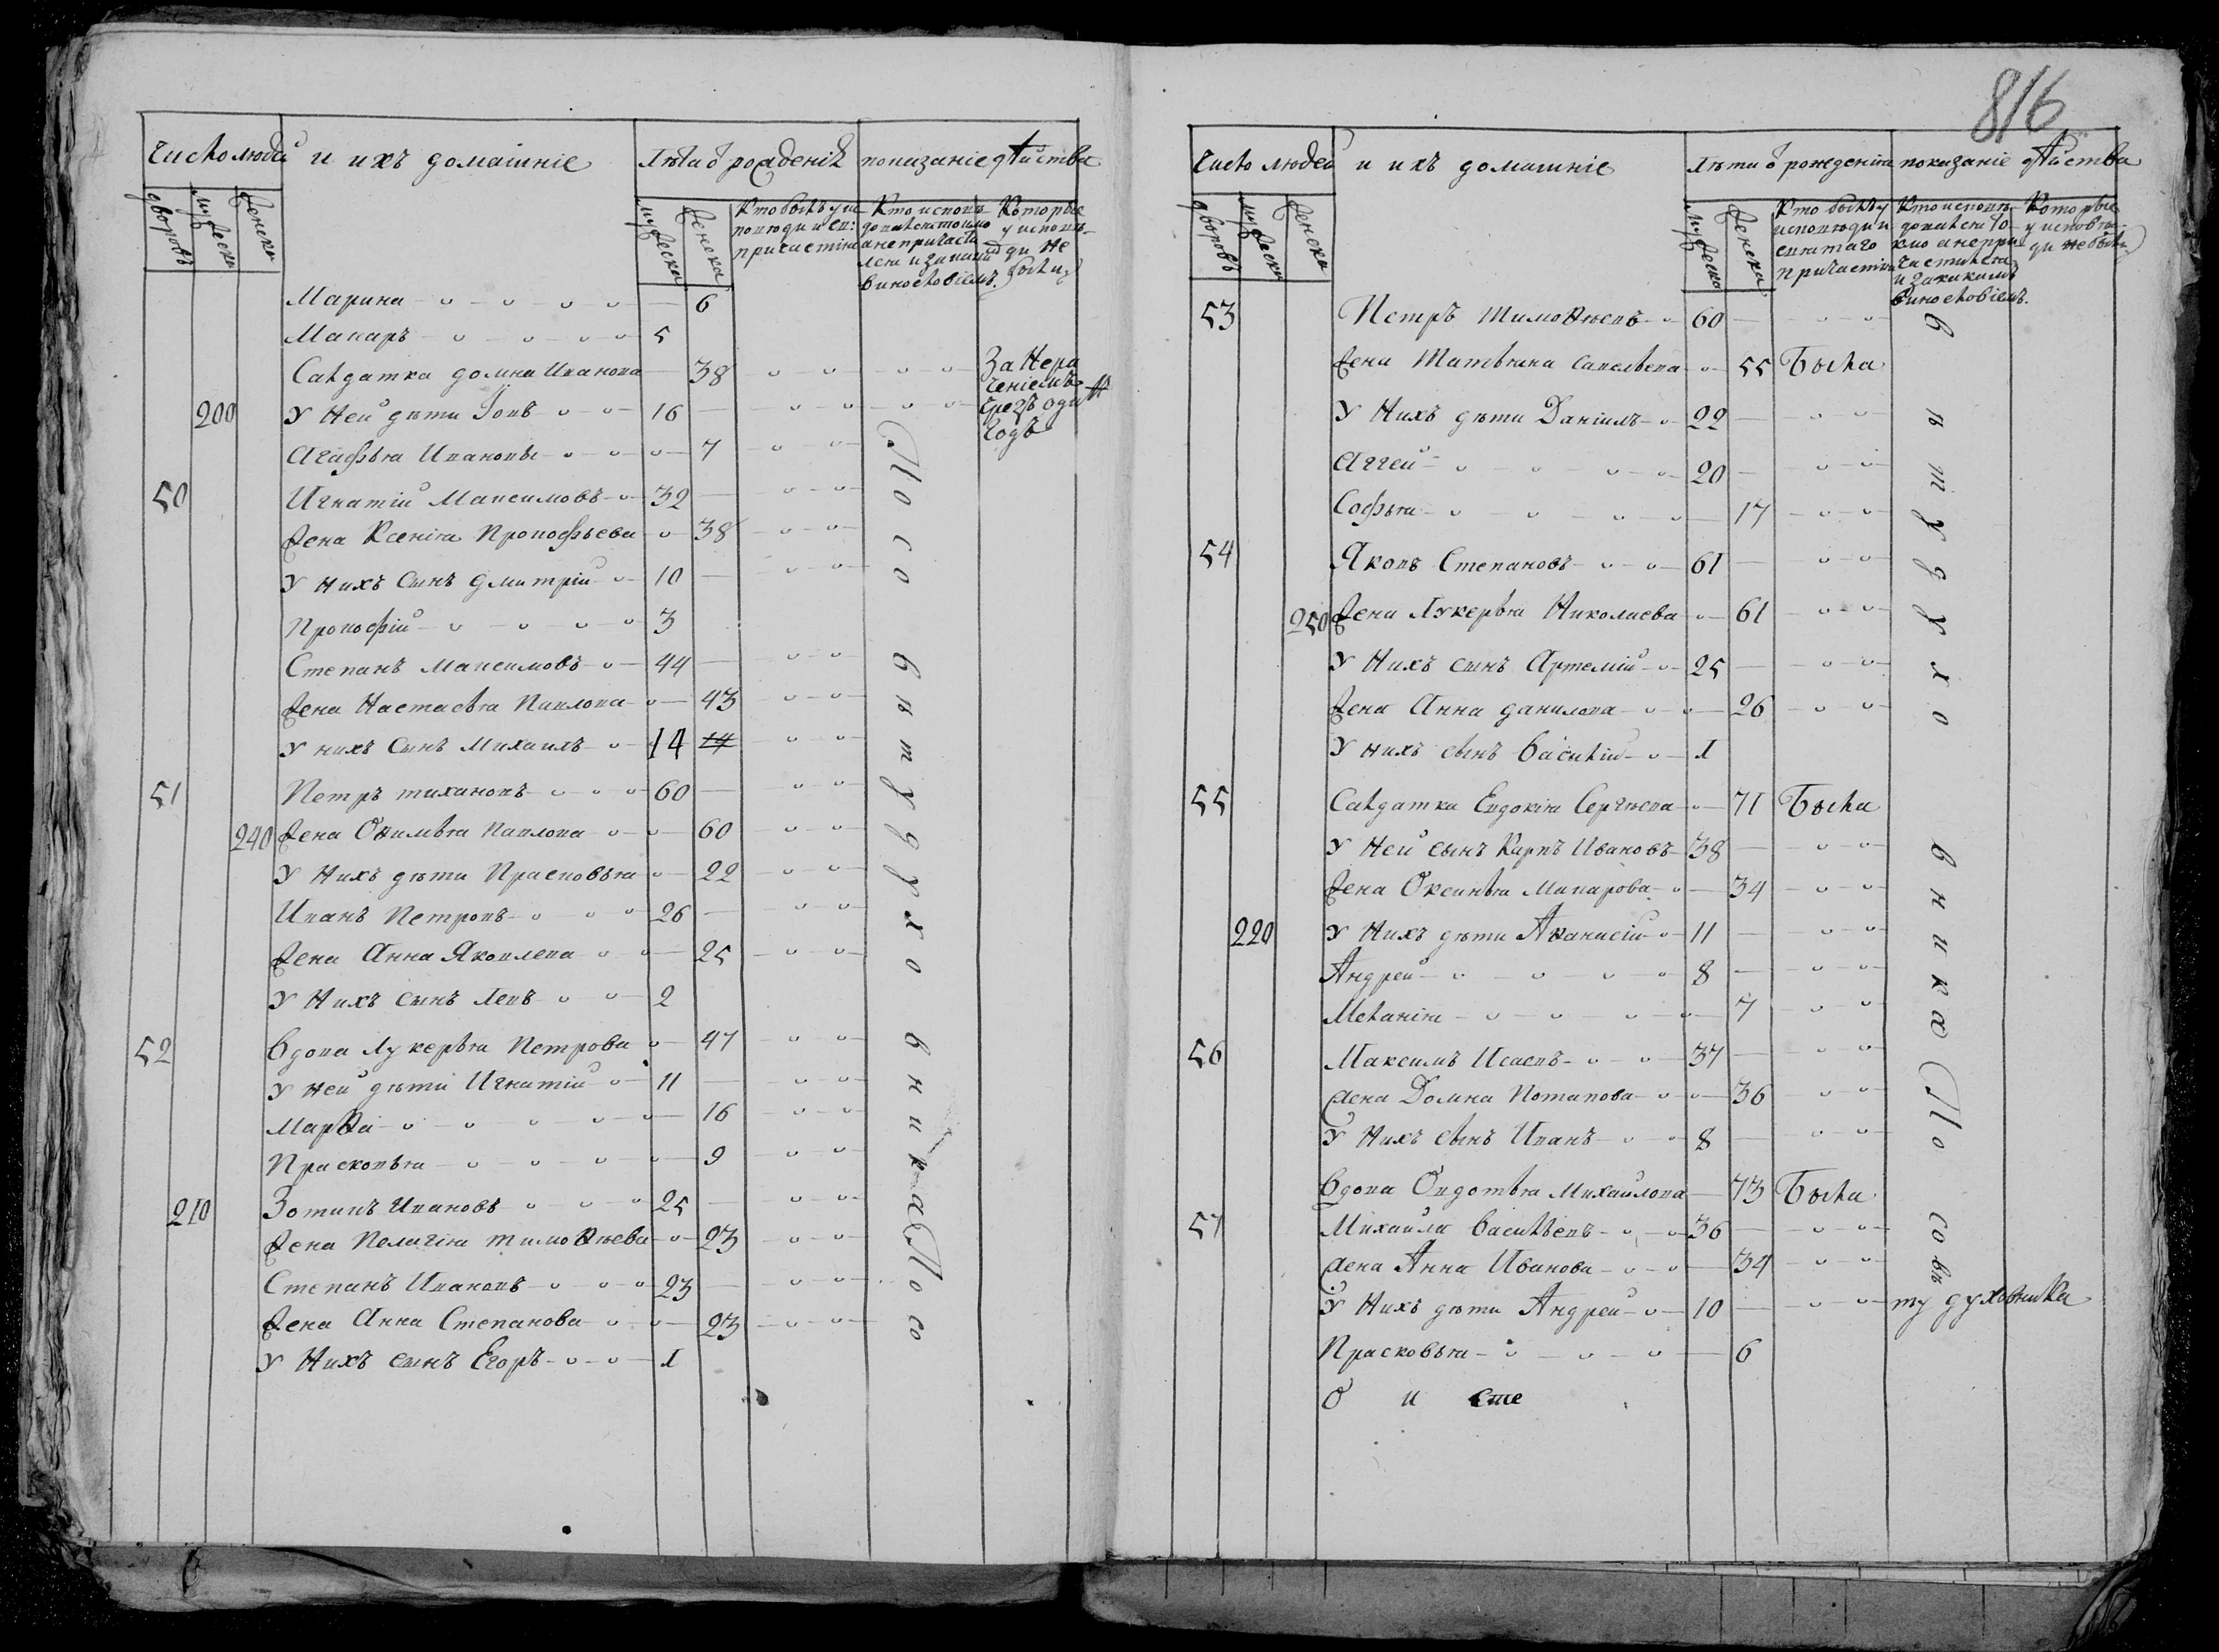 Число людей и ихъ домашніе Лѣта ѿ рожденія показаніе дѣйства
дворовъ мужеска женска мужеска женска
Кто былъ у исповѣди и св: причастія
Кто исповѣдался токмо а не причастился и за какимъ винословіемъ.
Которые у исповѣди не были
Марина 6
Макаръ 5
Салдатка домна Иванова 38 За Нерачениемъ чрезъ одинъ годъ
200 У Ней дѣти Іовъ 16
Агафья Ивановы 7
50 Игнатій Максимовъ 32
жена Ксенія Прокофьева 38
У нихъ сынъ дмитрій 10
Прокофій 3
Степанъ Максимовъ 44
жена Настасья Павлова 43
У нихъ Сынъ Михаилъ 14 14
51 Петръ тихановъ 60
240 жена Офимья Павлова 60
У Нихъ дѣти Прасковья 22
Иванъ Петровъ 26
жена Анна Яковлева 25
У Нихъ сынъ Левъ 2
52 Вдова Лукерья Петрова 47
У ней дѣти Игнатій 11
Марѳа 16
Прасковья 9
210 Зотикъ Ивановъ 25
жена Пелагія тимоѳѣева 23
Степанъ Ивановъ 23
жена Анна Степанова 23
У Нихъ сынъ Егоръ 1
По совѣту духовника По со
816
Число людей и ихъ домашніе Лѣта ѿ рожденія показаніе дѣйства
дворовъ мужеска женска мужеска женска
Кто былъ у исповѣди и святаго причастія
Кто исповѣдался токмо а не причастился и за какимъ винословіемъ.
Которые у исповѣди не были
53 Петръ тимоѳѣевъ 60
жена Татьяна Савельева 55 Была
У Нихъ дѣти Даніилъ 22
Аггей 20
Софья 17
54 Яковъ Степановъ 61
250 жена Лукерья Николаева 61
У Нихъ сынъ Артемій 25
жена Анна данилова 26
У нихъ сынъ Василій 1
55 Салдатка Евдокія Сергѣева 71 Была
У Ней сынъ Карпъ Ивановъ 38
жена Оксинья Макарова 34
220 У Нихъ дѣти Аѳанасій 11
Андрей 8
Меланія 7
56 Максимъ Исаевъ 37
жена Домна Потапова 36
У Нихъ сынъ Иванъ 8
Вдова Овдотья Михайлова 73 Была
57 Михайла Васильевъ 36
жена Анна Иванова 34
У Нихъ дѣти Андрей 10
Прасковья 6
вѣту духовника По совѣту духовника